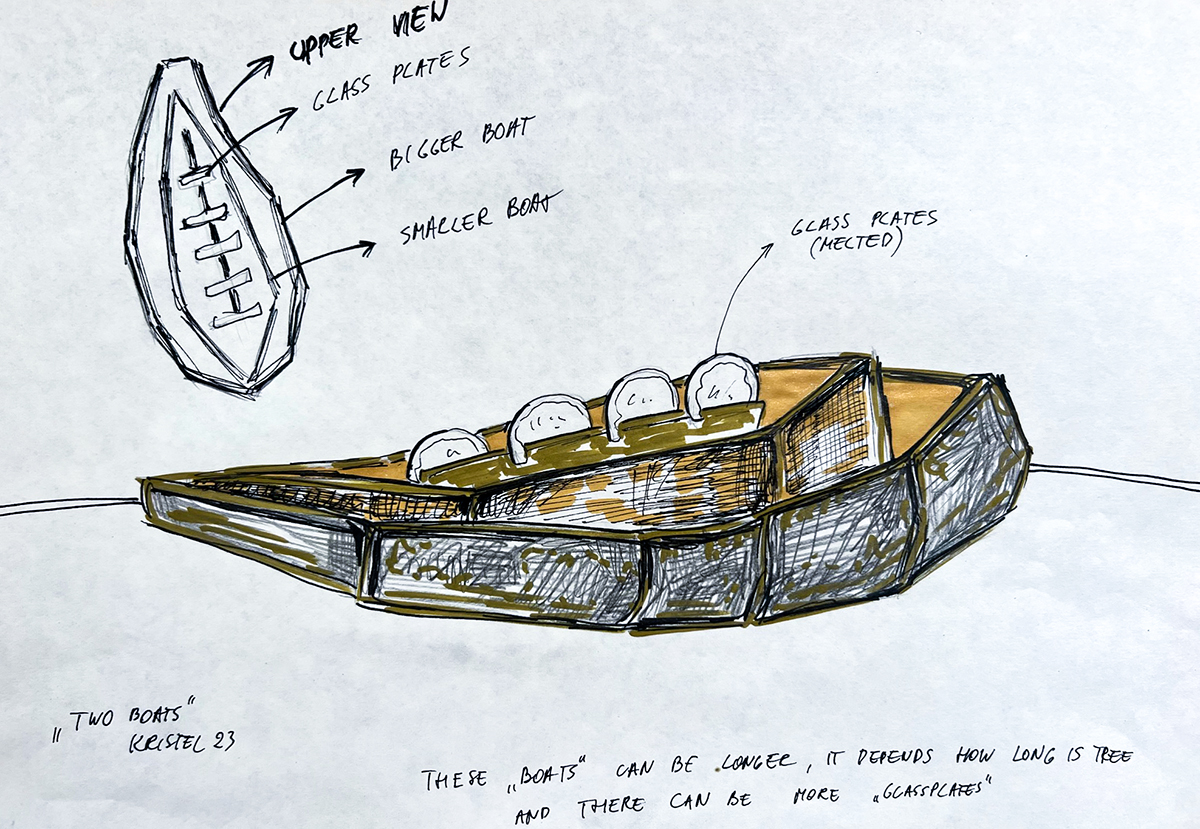 UPPER VIEW
GLASS PLATES
BIGGER BOAT
SMALLER BOAT
GLASS PLATES
(MELTED)
„TWO BOATS“
KRISTEL 23
THESE „BOATS“ CAN BE LONGER, IT DEPENDS HOW LONG IS TREE
AND THERE CAN BE MORE „GLASSPLATES“